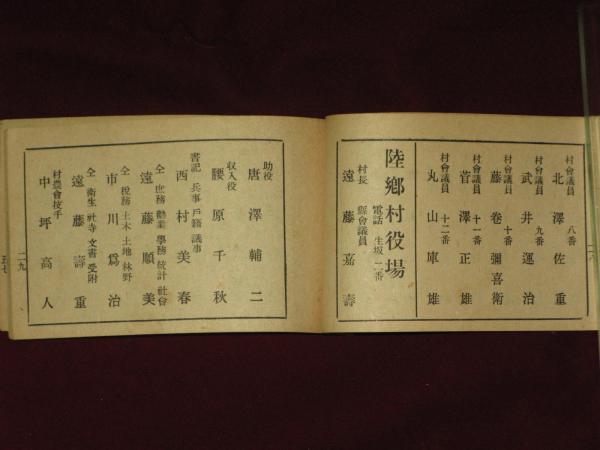 村會議員 八番
北澤佐重
村會議員 九番
武井運治
村會議員 十番
藤卷彌喜衛
村會議員 十一番
菅澤正雄
村會議員 十二番
丸山庫雄
陸鄉村役場
電話 生坂二番
村長 縣會議員
遠藤嘉壽
助役
唐澤輔二
収入役
腰原千秋
書記 兵事 戶籍 議事
西村美春
仝 庶務 勸業 學務 統計 社會
遠藤順美
仝 稅務 土木 土地 林野
市川爲治
仝 衛生 社寺 文書 受附
遠藤壽重
村農會技手
中坪高人
二九